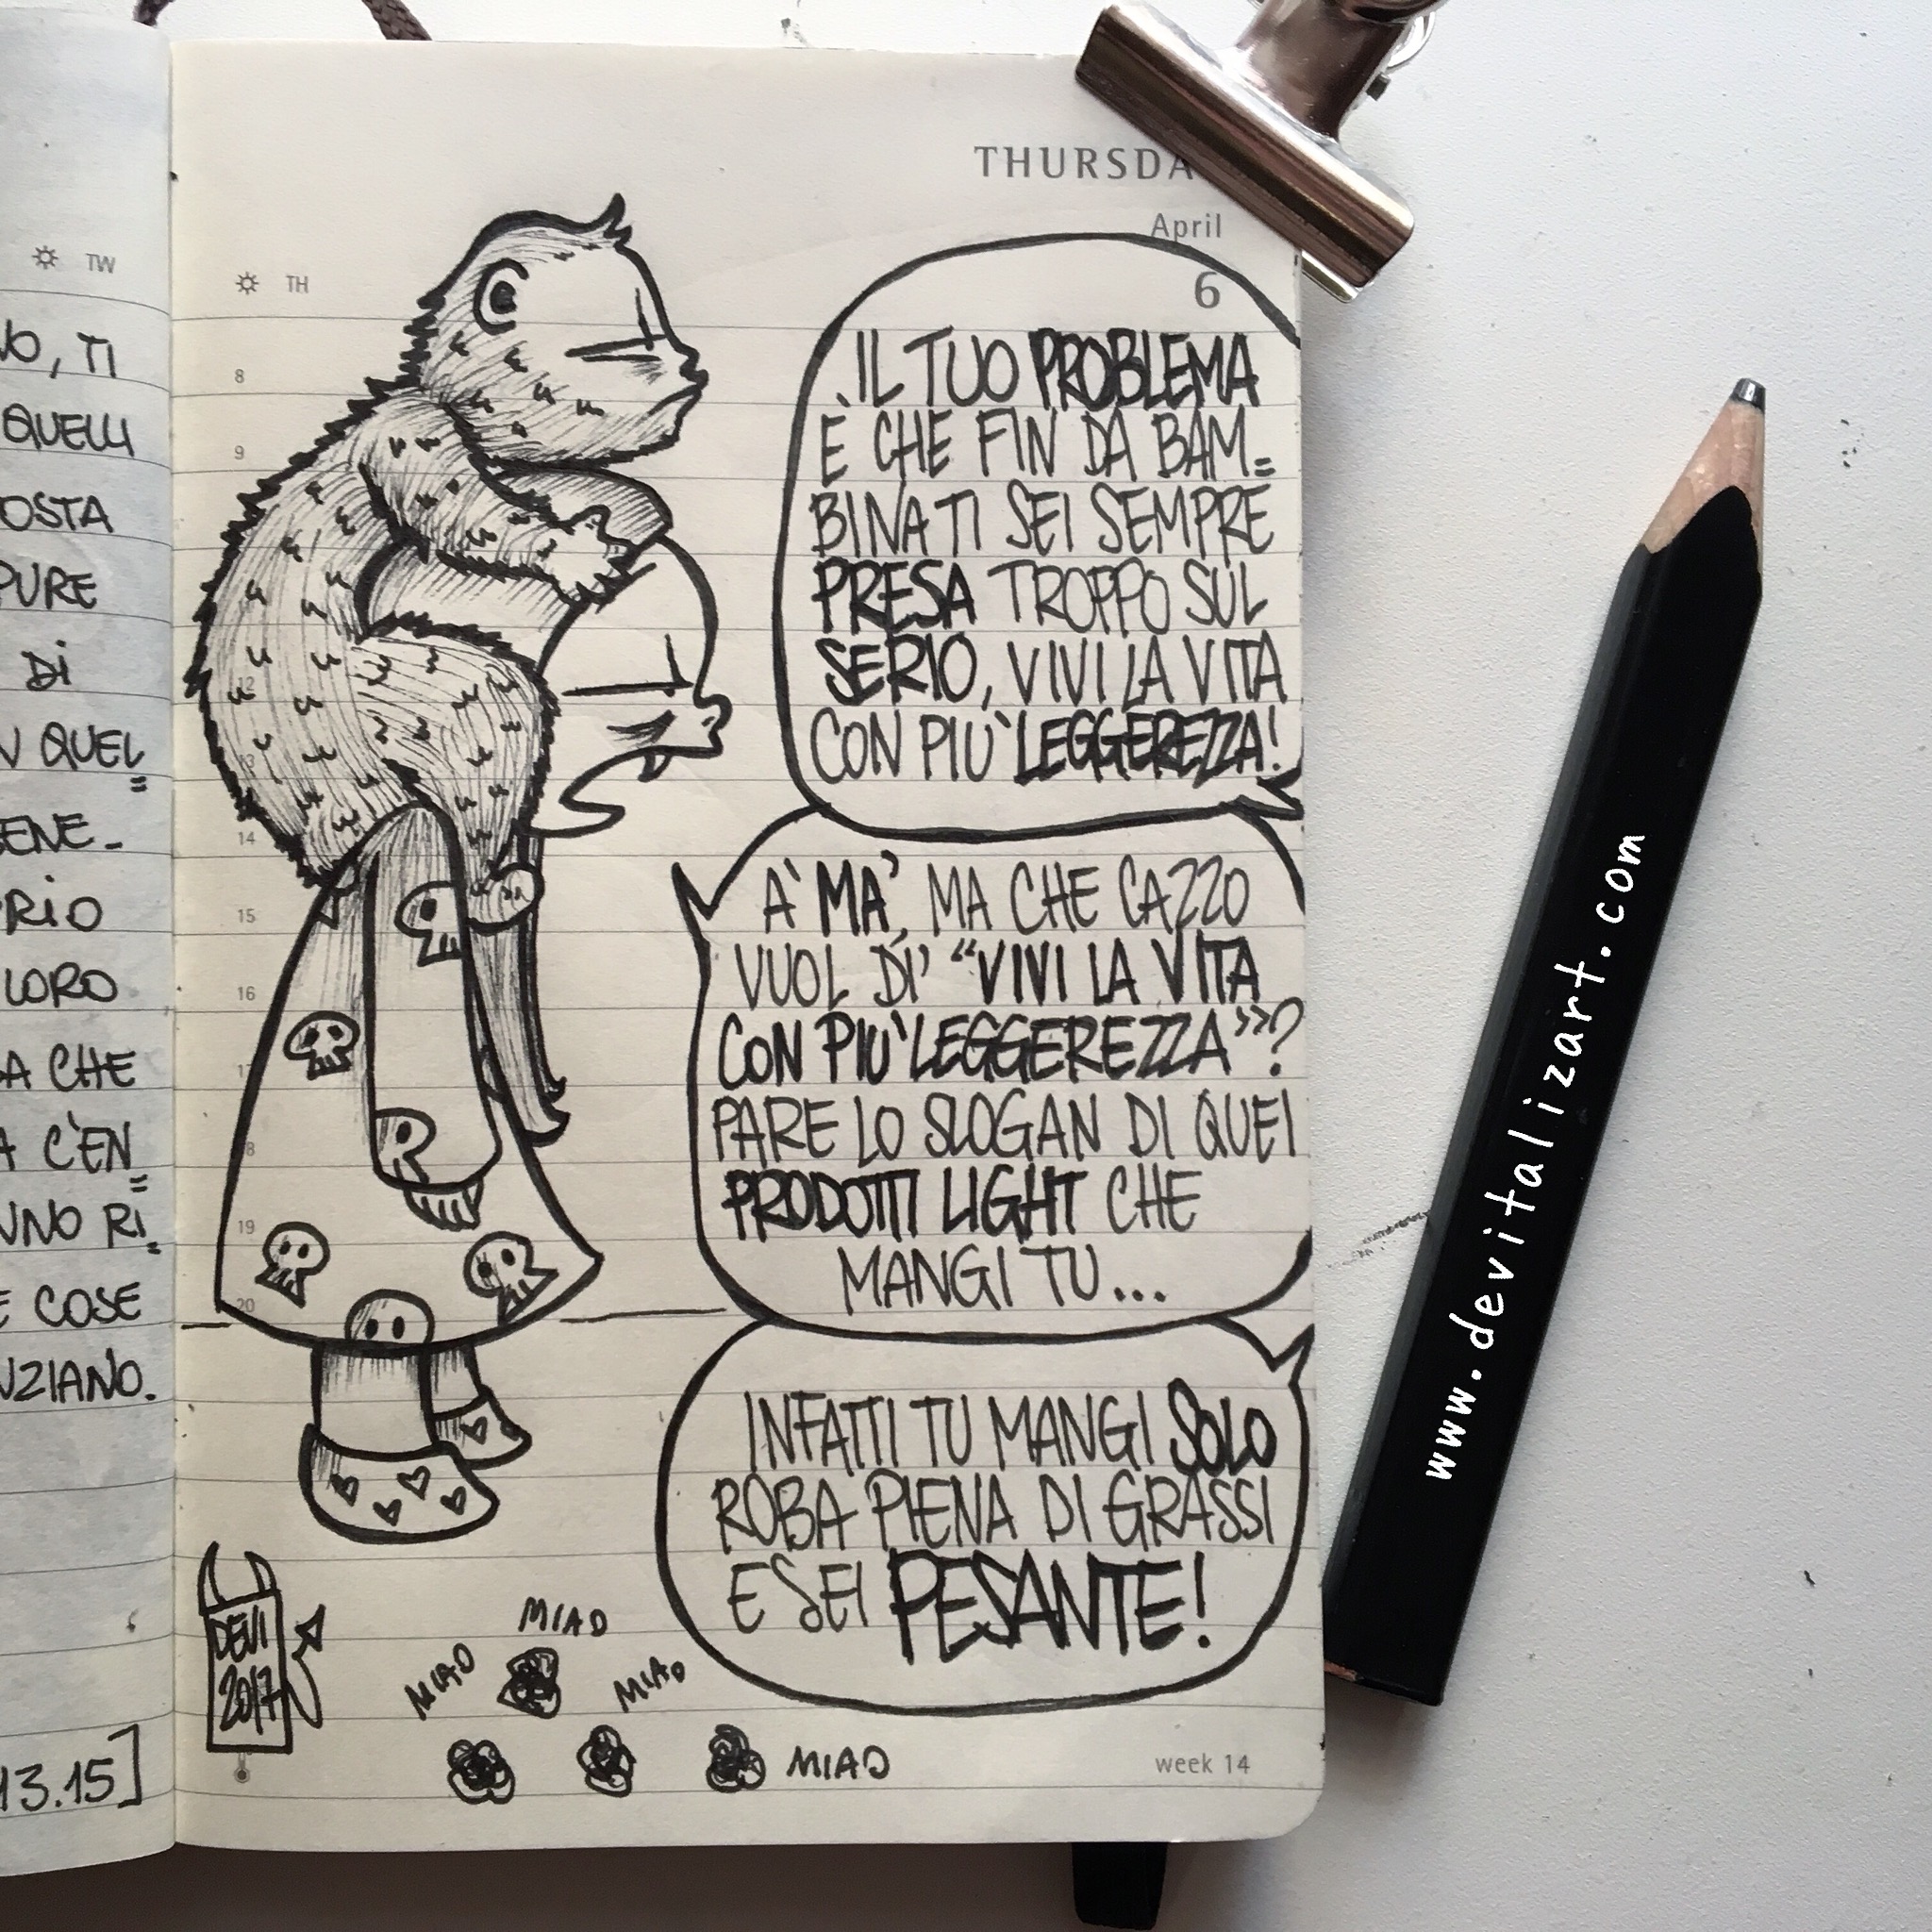 THURSDA
April
6
TW
TH
NO, TI
QUELLI
OSTA
PURE
DI
N QUEL=
BENE-
RIO
LORO
A CHE
A C'EN=
NNO RI=
E COSE
NZIANO.
13.15]
8
9
12
13
14
15
16
17
8
19
20
IL TUO PROBLEMA
È CHE FIN DA BAM=
BINA TI SEI SEMPRE
PRESA TROPPO SUL
SERIO, VIVI LA VITA
CON PIU' LEGGEREZZA!
A' MA', MA CHE CAZZO
VUOL DI' “VIVI LA VITA
CON PIU' LEGGEREZZA”?
PARE LO SLOGAN DI QUEI
PRODOTTI LIGHT CHE
MANGI TU...
INFATTI TU MANGI SOLO
ROBA PIENA DI GRASSI
E SEI PESANTE!
DEVI
2017
MIAO
MIAO
MIAO
MIAO
week 14
www.devitalizart.com